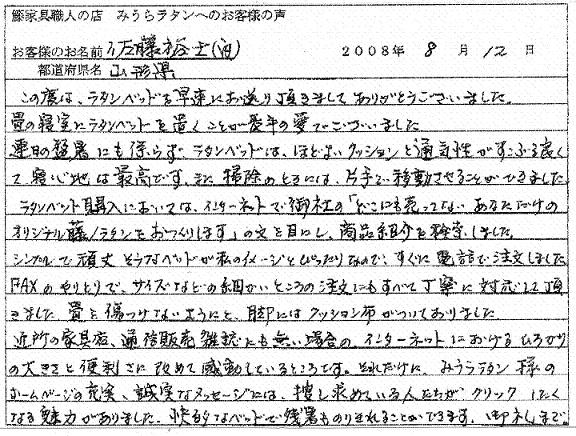 籐家具職人の店 みうらラタンへのお客様の声
お客様のお名前 佐藤裕士(様) 2008年 8月12日
都道府県名 山形県
この度は、ラタンベッドを早速にお送り頂きまして ありがとうございました。
畳の寝室にラタンベットを置くことが長年の夢でございました
連日の猛暑にも係らず ラタンベッドは、ほどよいクッションと通気性がすこぶる良く
て寝心地は最高です。また掃除のときには、片手で移動させることができました
ラタンベット購入においては、インターネットで御社の「どこにも売ってない あなただけの
オリジナル籐/ラタンをおつくりします」の文を目にし、商品紹介を検索しました。
シンプルで頑丈そうなベッドが私のイメージとぴったりなので、すぐに電話で注文しました
FAXのやりとりで、サイズなどの細かいところの注文にもすべて丁寧に対応して頂
きました 畳を傷つけないようにと、脚にはクッション布がついておりました
近所の家具店、通信販売雑誌にも無い場合の、インターネットにおけるひろがり
の大きさと便利さに改めて感動しているところです。それだけに、みうらラタン様の
ホームページの充実、誠実なメッセージには、捜し求めている人たちが、クリックしたく
なる魅力がありました。快的なベッドで残暑ものりきれることができます。御礼まで。